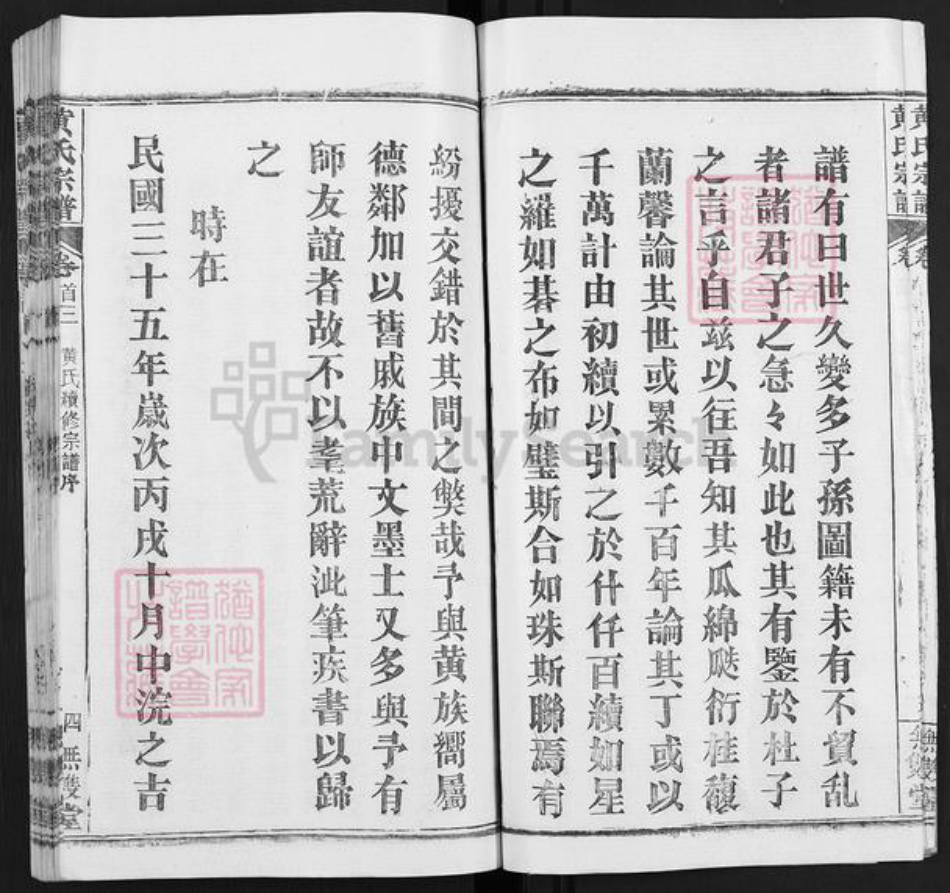 黄氏宗譜
卷
無雙堂
譜有曰世久變多子孫圖籍未有不貿乱
者諸君子之急々如此也其有鑒於杜子
之言乎自兹以往吾知其瓜綿瓞衍桂馥
蘭馨論其世或累數千百年論其丁或以
千萬計由初續以引之於什仟百續如星
之羅如碁之布如璧斯合如珠斯聯焉有
紛擾交錯於其間之獘哉予與黄族嚮屬
德鄰加以舊戚族中文墨士又多與予有
師友誼者故不以耄荒辭泚筆疾書以歸
之
時在
民國三十五年歲次丙戌十月中浣之吉
黄氏宗譜
卷首三
黄氏續修宗譜序
四
無雙堂
FamilySearch